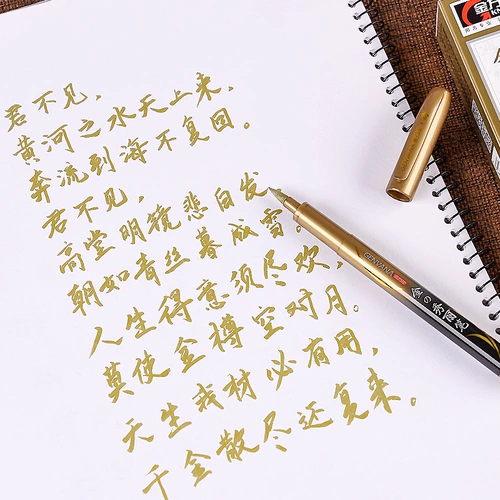 君不见，
黄河之水天上来，
奔流到海不复回。
君不见，
高堂明镜悲白发
朝如青丝暮成雪。
人生得意须尽欢，
莫使金樽空对月。
天生我材必有用，
千金散尽还复来。
GENVANA
金の秀丽笔